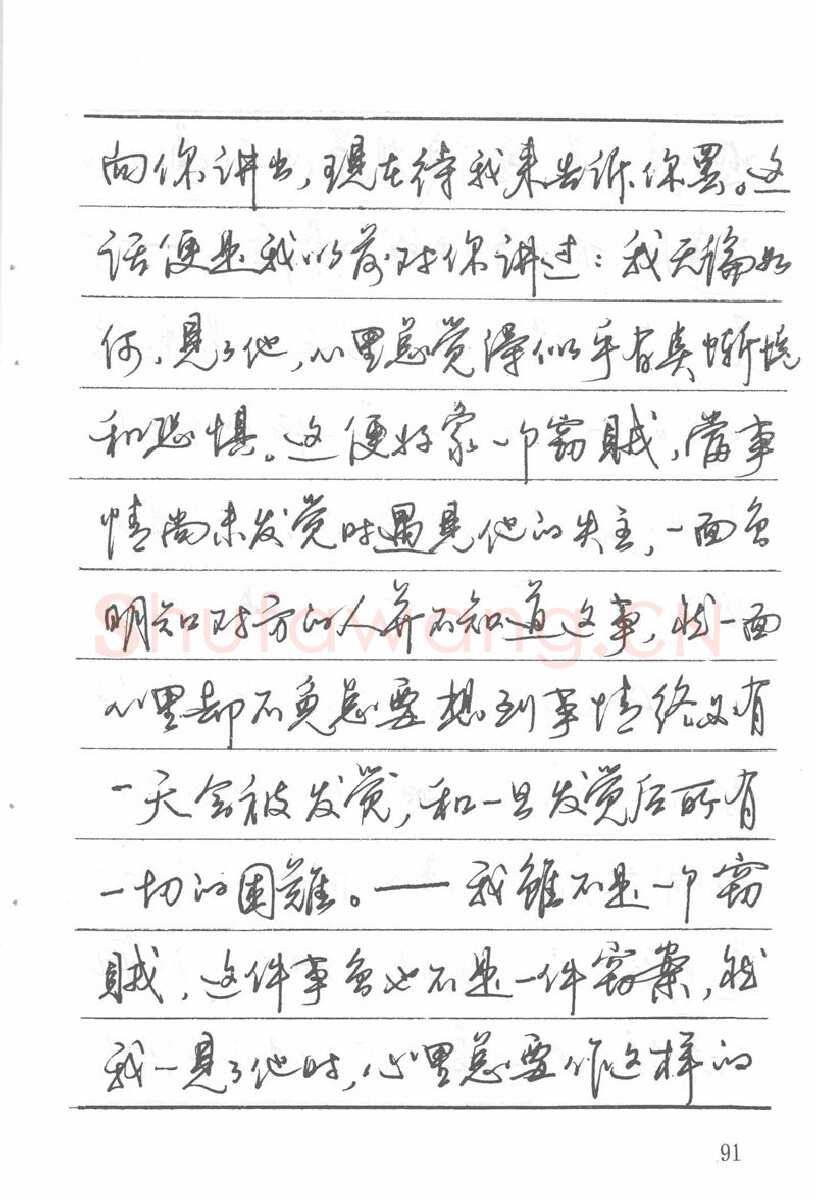 向你讲出，現在待我来告诉你罢。这
话便是我以前对你讲过：我无論如
何，見了他，心里总觉得似乎有类惭愧
和恐惧。这便好象一个窃賊，當事
情尚未发觉时遇見他的失主，一面虽
明知对方的人并不知道这事，然一面
心里却不免总要想到事情终必有
一天会被发觉，和一旦发觉后所有
一切的困難。——我雖不是一个窃
賊，这件事虽也不是一件窃案，然
我一見了他时，心里总要作这样的
Shufawang.CN
91